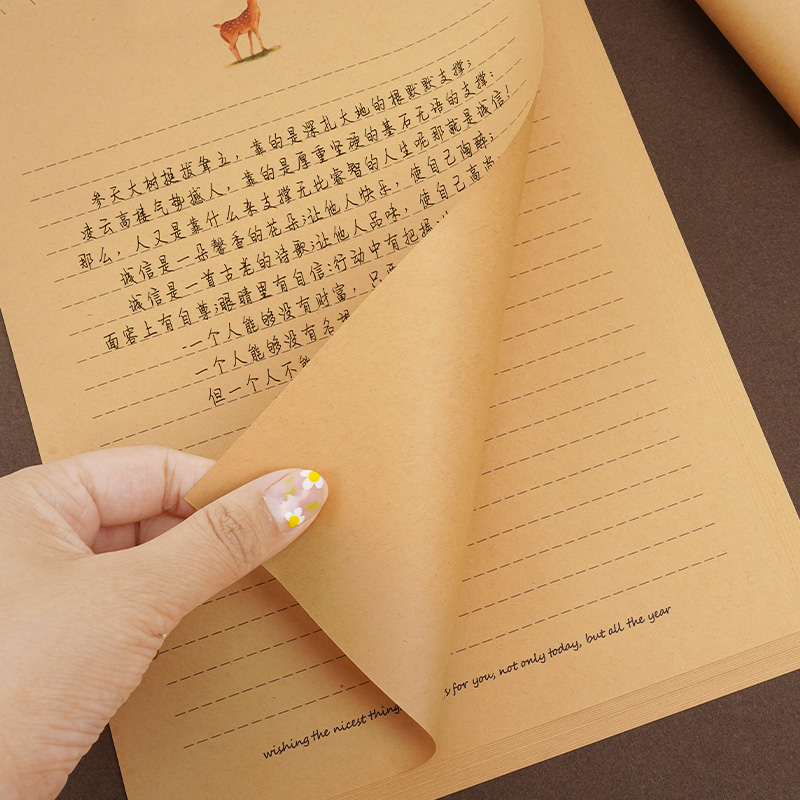 参天大树挺拔耸立，靠的是深扎大地的根默默支撑；
凌云高楼气势撼人，靠的是厚重坚硬的基石无语的支撑；
那么，人又是靠什么来支撑无比睿智的人生呢那就是诚信！
诚信是一朵馨香的花朵；让他人快乐，使自己陶醉；
诚信是一首古老的诗歌；让他人品味，使自己高尚
面容上有自尊；眼睛里有自信；行动中有把握
一个人能够没有财富，只
一个人能够没有名
但一个人不能
wishing the nicest thing
s for you, not only today, but all the year